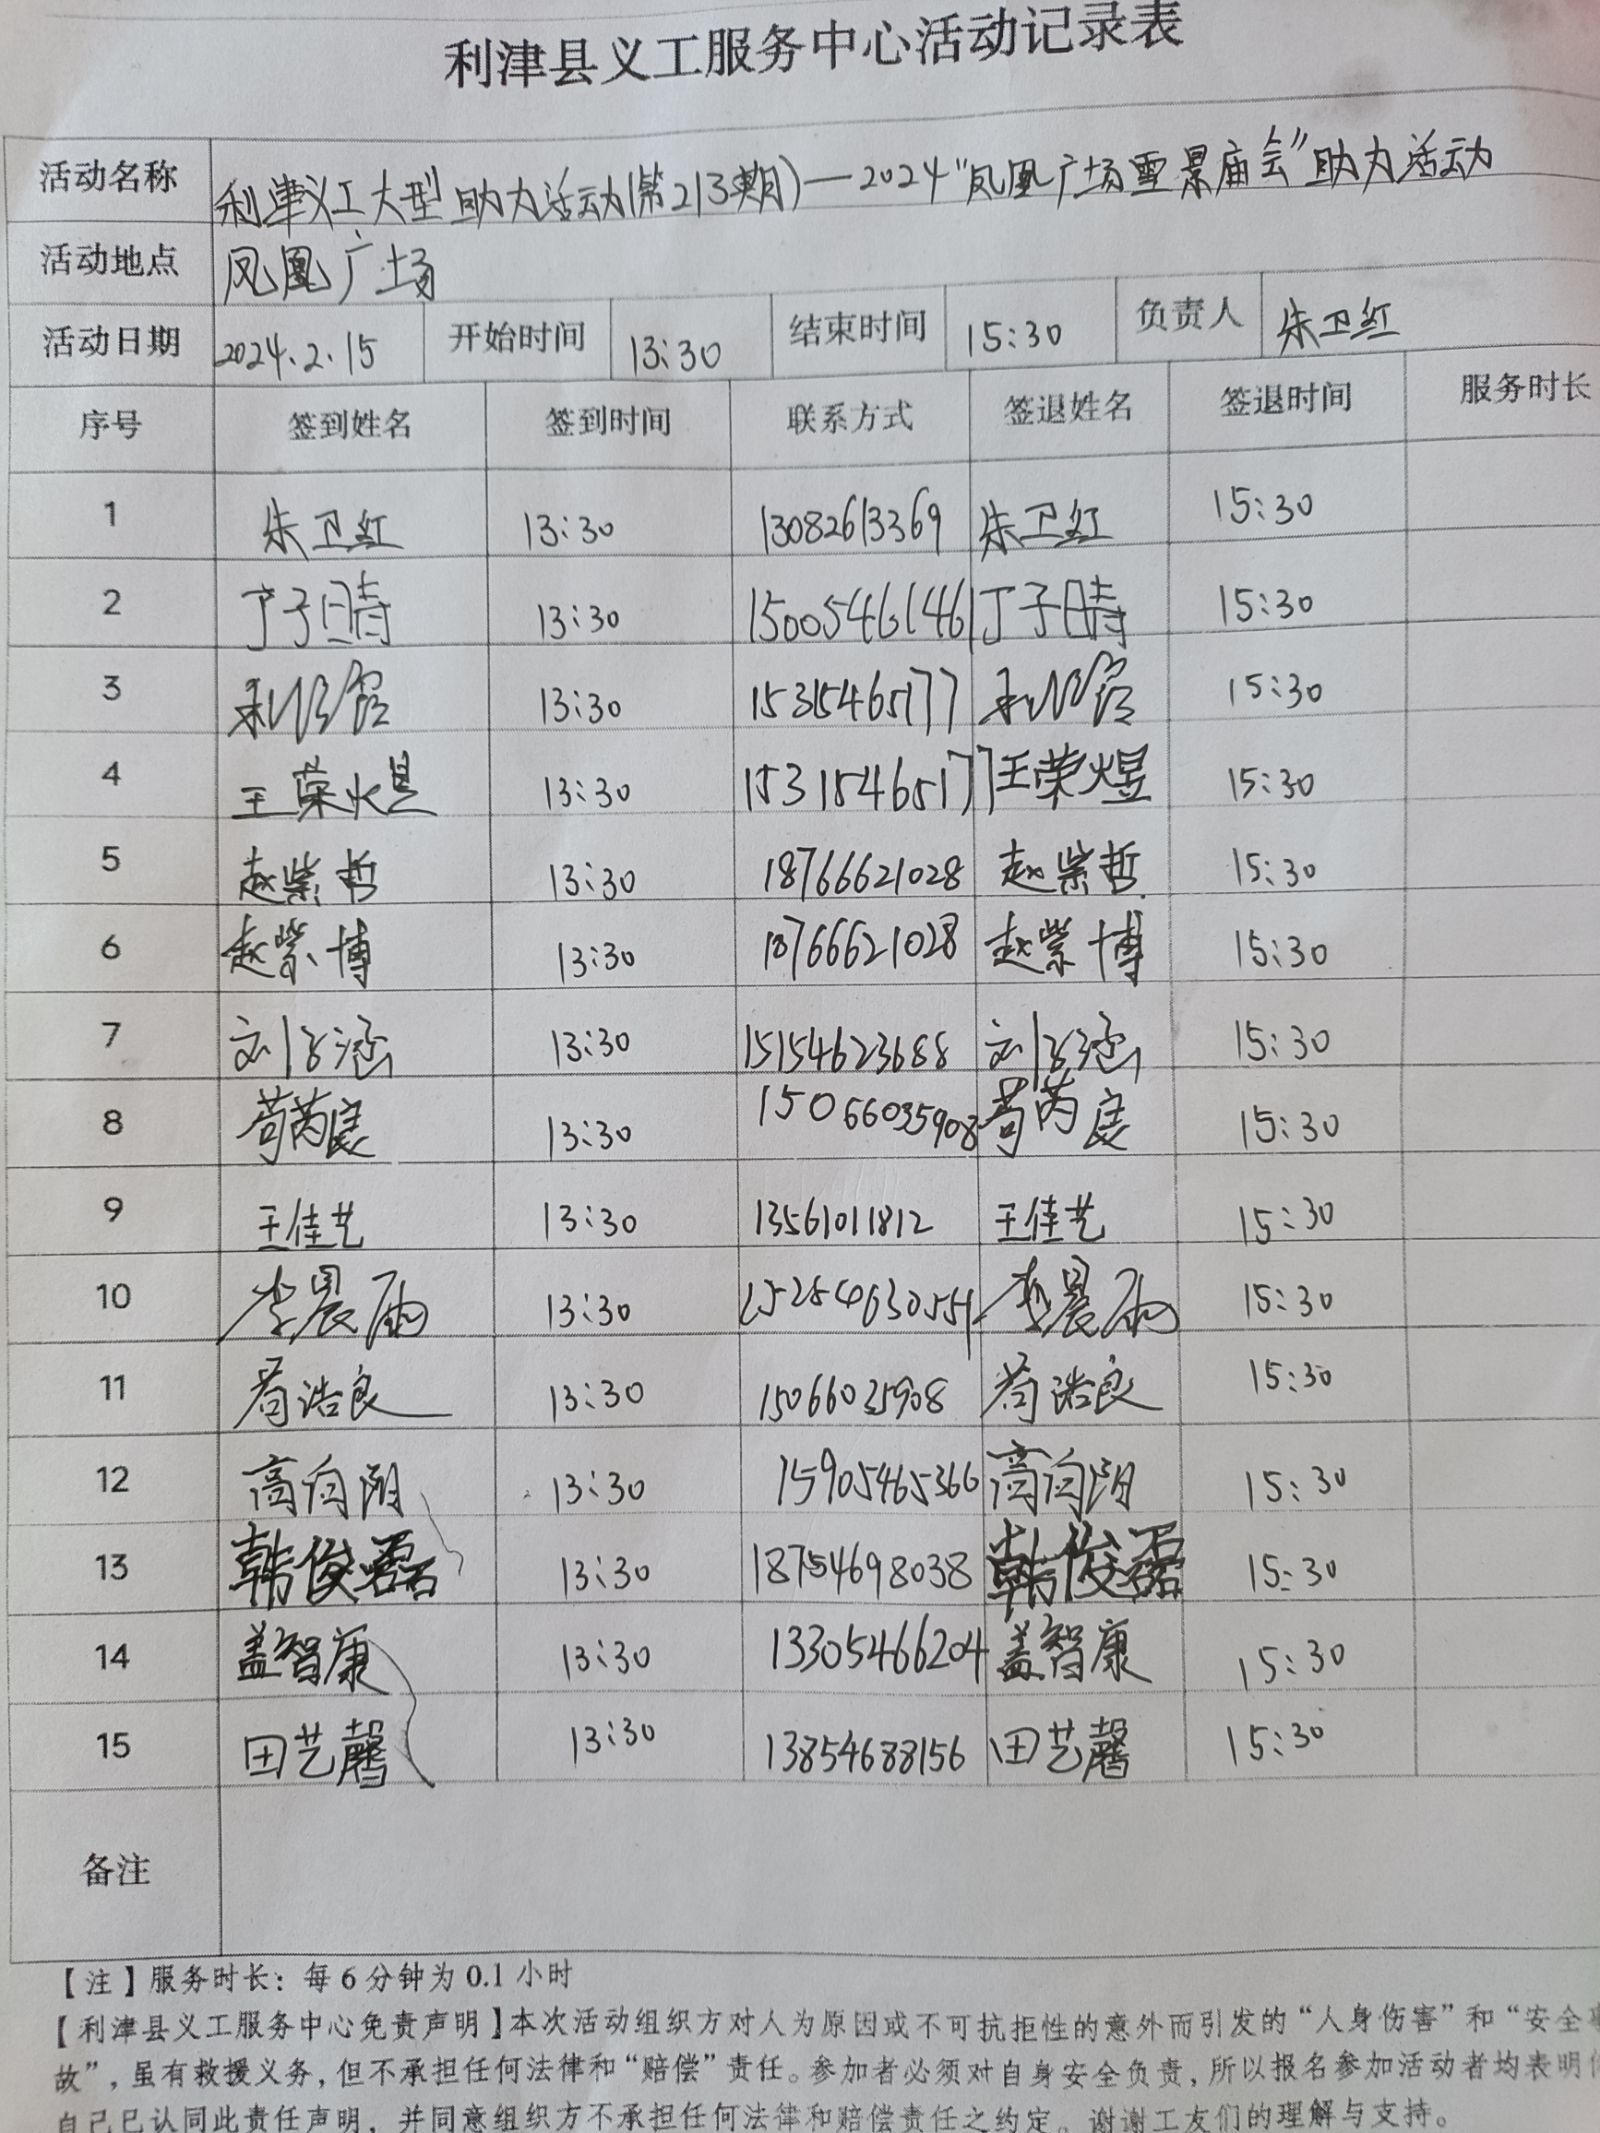 利津县义工服务中心活动记录表
活动名称 利津义工大型助力活动(第213期)—2024“凤凰广场雪景庙会”助力活动
活动地点 凤凰广场
活动日期 2024.2.15 开始时间 13:30 结束时间 15:30 负责人 朱卫红
序号 签到姓名 签到时间 联系方式 签退姓名 签退时间 服务时长
1 朱卫红 13:30 13082613369 朱卫红 15:30
2 丁子晴 13:30 15005461461 丁子晴 15:30
3 13:30 15315465177 15:30
4 王荣煜 13:30 15315465177 王荣煜 15:30
5 赵紫哲 13:30 18766621028 赵紫哲 15:30
6 赵紫博 13:30 18766621028 赵紫博 15:30
7 刘子涵 13:30 15154623688 刘子涵 15:30
8 13:30 15066035908 15:30
9 王佳艺 13:30 13561011812 王佳艺 15:30
10 李晨雨 13:30 李晨雨 15:30
11 苟浩良 13:30 15066035908 苟浩良 15:30
12 高向阳 13:30 15905465366 高向阳 15:30
13 韩俊磊 13:30 18754698038 韩俊磊 15:30
14 盖智康 13:30 13305466204 盖智康 15:30
15 田艺馨 13:30 13854688156 田艺馨 15:30
备注
【注】服务时长：每6分钟为0.1小时
【利津县义工服务中心免责声明】本次活动组织方对人为原因或不可抗拒性的意外而引发的“人身伤害”和“安全事
故”，虽有救援义务，但不承担任何法律和“赔偿”责任。参加者必须对自身安全负责，所以报名参加活动者均表明
自己已认同此责任声明，并同意组织方不承担任何法律和赔偿责任之约定。谢谢工友们的理解与支持。